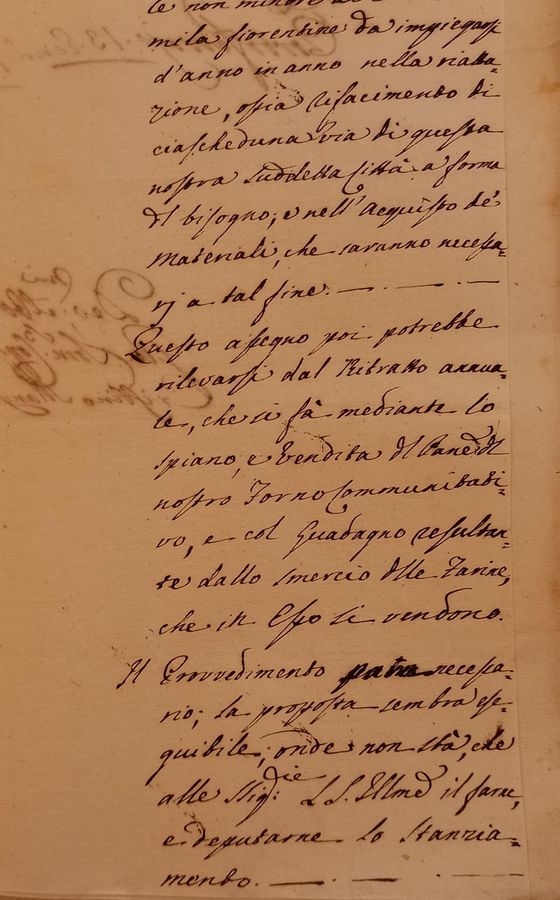 le non minore di
mila fiorentine da impiegarsi
d'anno in anno nella riatta-
zione, ossia rifacimento di
ciascheduna Via di questa
nostra suddetta Città a forma
del bisogno; e nell'acquisto de'
Materiali, che saranno necessa-
rj a tal fine.
Questo assegno poi potrebbe
rilevarsi dal Ritratto annua-
le, che si fà mediante lo
spiano, e Vendita del Pane del
nostro Forno Communitati-
vo, e col Guadagno resultan-
te dallo smercio delle Farine,
che in Esso si vendono.
Il Provvedimento necessa-
rio; la proposta sembra ese-
quibile; onde non stà, che
alle Sig:die LL.SS.Illme il fare,
e deputarne lo Stanzia-
mento.